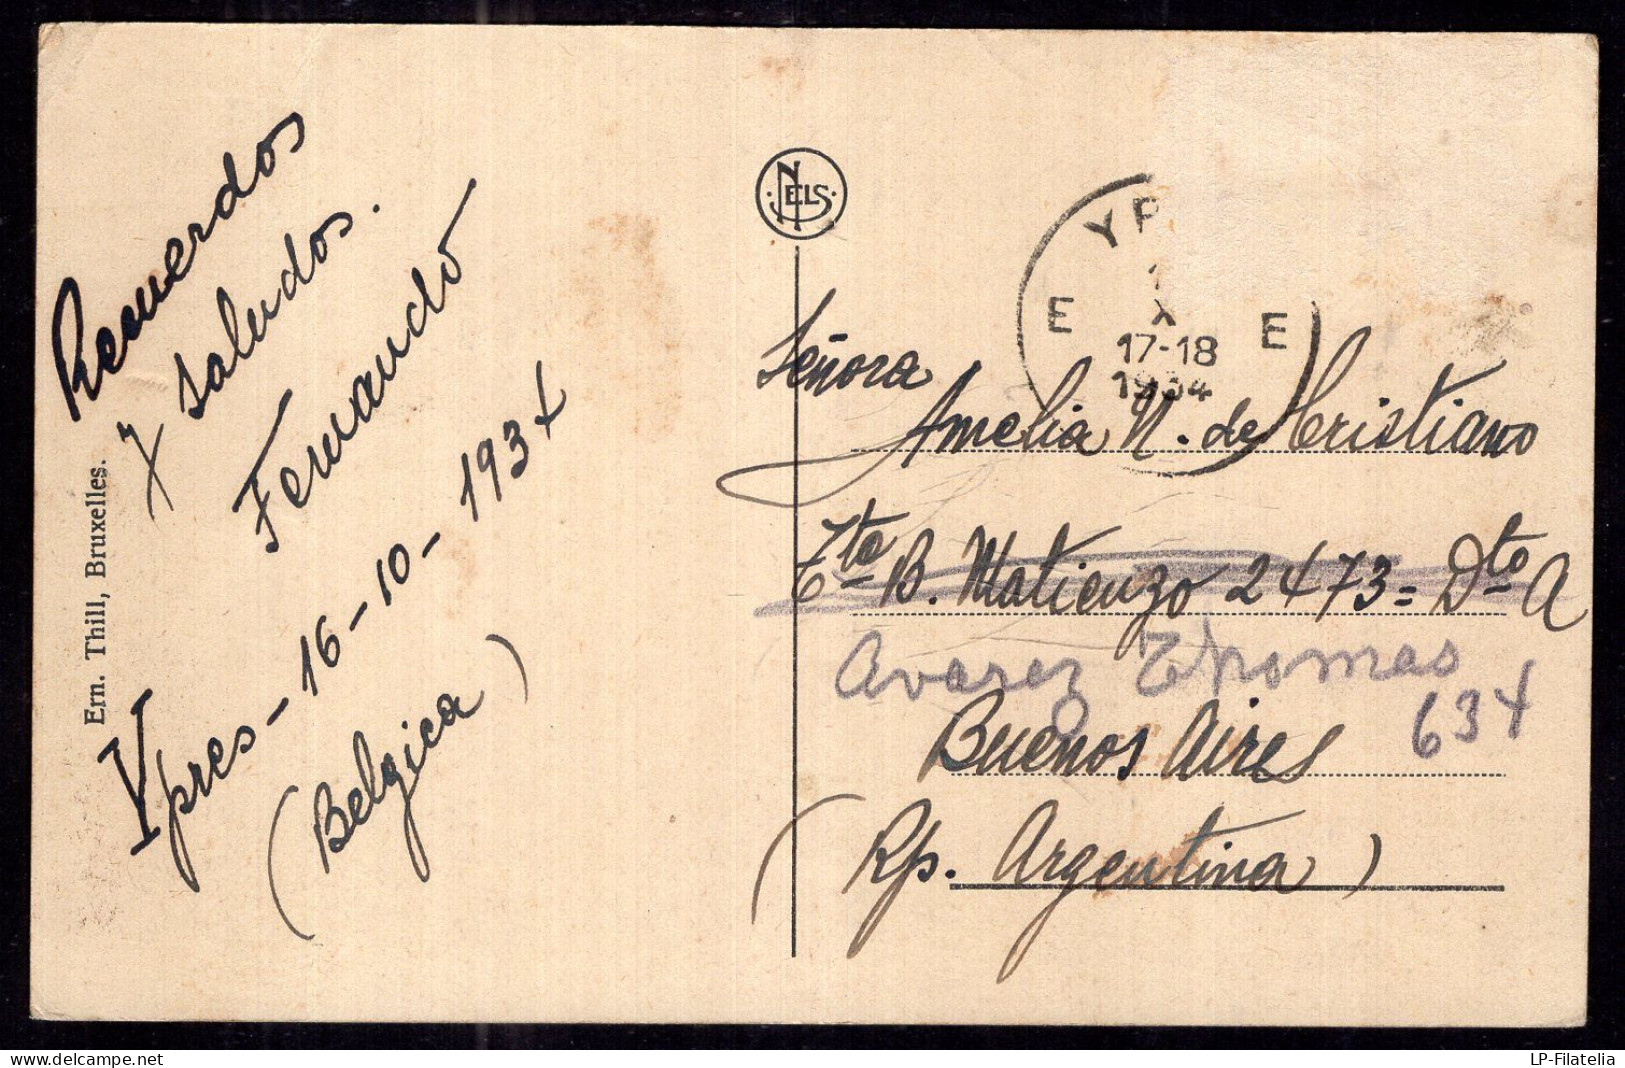 Recuerdos
y saludos.
Fernando
Ypres-16-10-1934
(Belgica)
Ern. Thill, Bruxelles.
NELS
YP
E X E
17-18
1934
Señora
Amelia N. de Cristiano
Tte B. Matienzo 2473= Dto A
Avarez Thomas
634
Buenos Aires
(Rp. Argentina)
LP-Filatelia